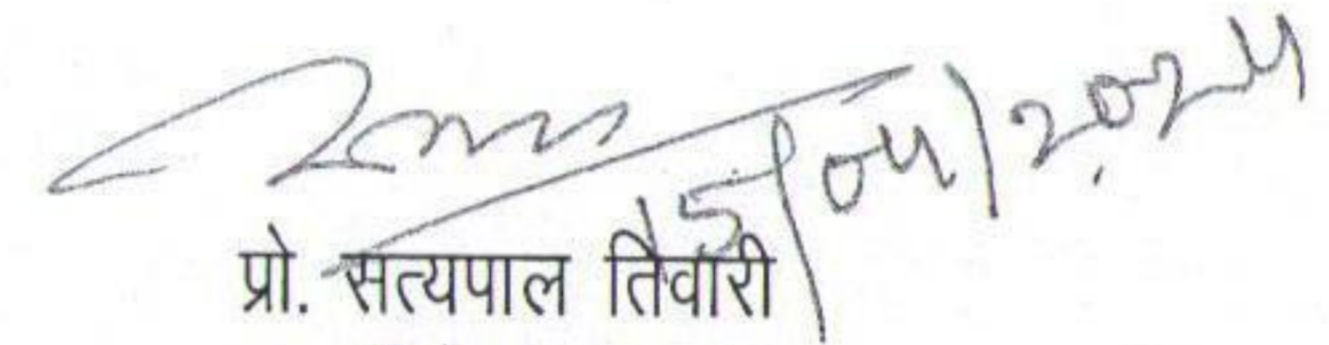 15/04/2024
प्रो. सत्यपाल तिवारी